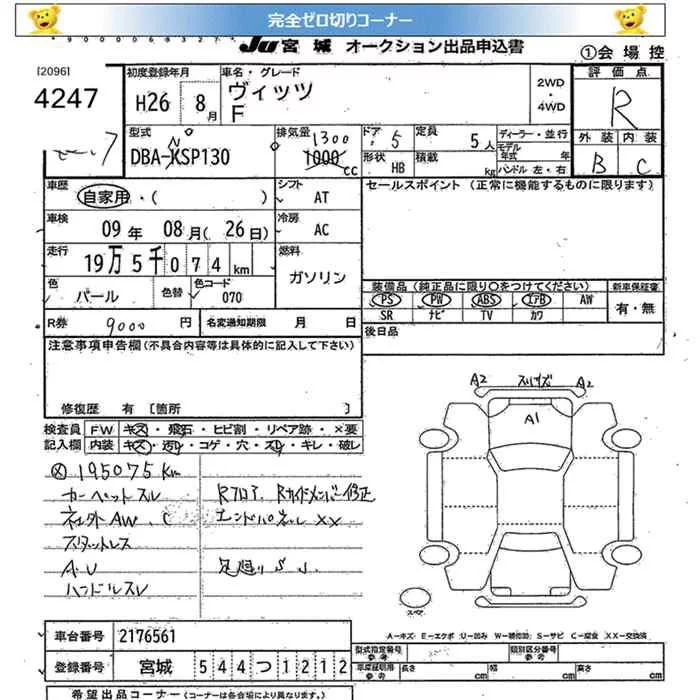 完全ゼロ切りコーナー
JU 宮城 オークション出品申込書
①会場控
[2096]
4247
初度登録年月
H26 8月
車名・グレード
ヴィッツ
F
2WD
・
4WD
評価点
R
外装 内装
B C
型式
DBA-KSP130
排気量
1300
1000cc
ドア 5
形状 HB
定員 5人
積載 kg
ディーラー・並行
モデル年式 年
ハンドル 左・右
車歴
自家用・( )
シフト
AT
セールスポイント (正常に機能するものに限ります)
車検
09年 08月(26日)
冷房
AC
走行
19万5千074km
燃料
ガソリン
色
パール
色替
色コード
070
装備品(純正品に限り○をつけてください)
新車保証書
PS PW ABS エアB AW
SR ナビ TV カワ
有・無
R券 9000円
名変通知期限 月 日
後日品
注意事項申告欄(不具合内容等は具体的に記入して下さい)
修復歴 有 [箇所 ]
検査員記入欄
FW キズ・飛石・ヒビ割・リペア跡・×要
内装 キズ・汚レ・コゲ・穴・スレ・キレ・破レ
195075Km
カーペットスレ
社外AW
スタットレス
A.U
ハンドルスレ
Rフロア、Rサイドメンバー修正
エンドパネルXX
足廻りS
A2 A2
A1
スペア
A-キズ E-エクボ U-凹み W-補修跡 S-サビ C-腐食 XX-交換済
車台番号 2176561
登録番号 宮城 544 つ 1212
型式指定番号 参考
類別区分番号 参考
長さ cm 幅 cm 高さ cm
希望出品コーナー(コーナーは各会場により異なります。)